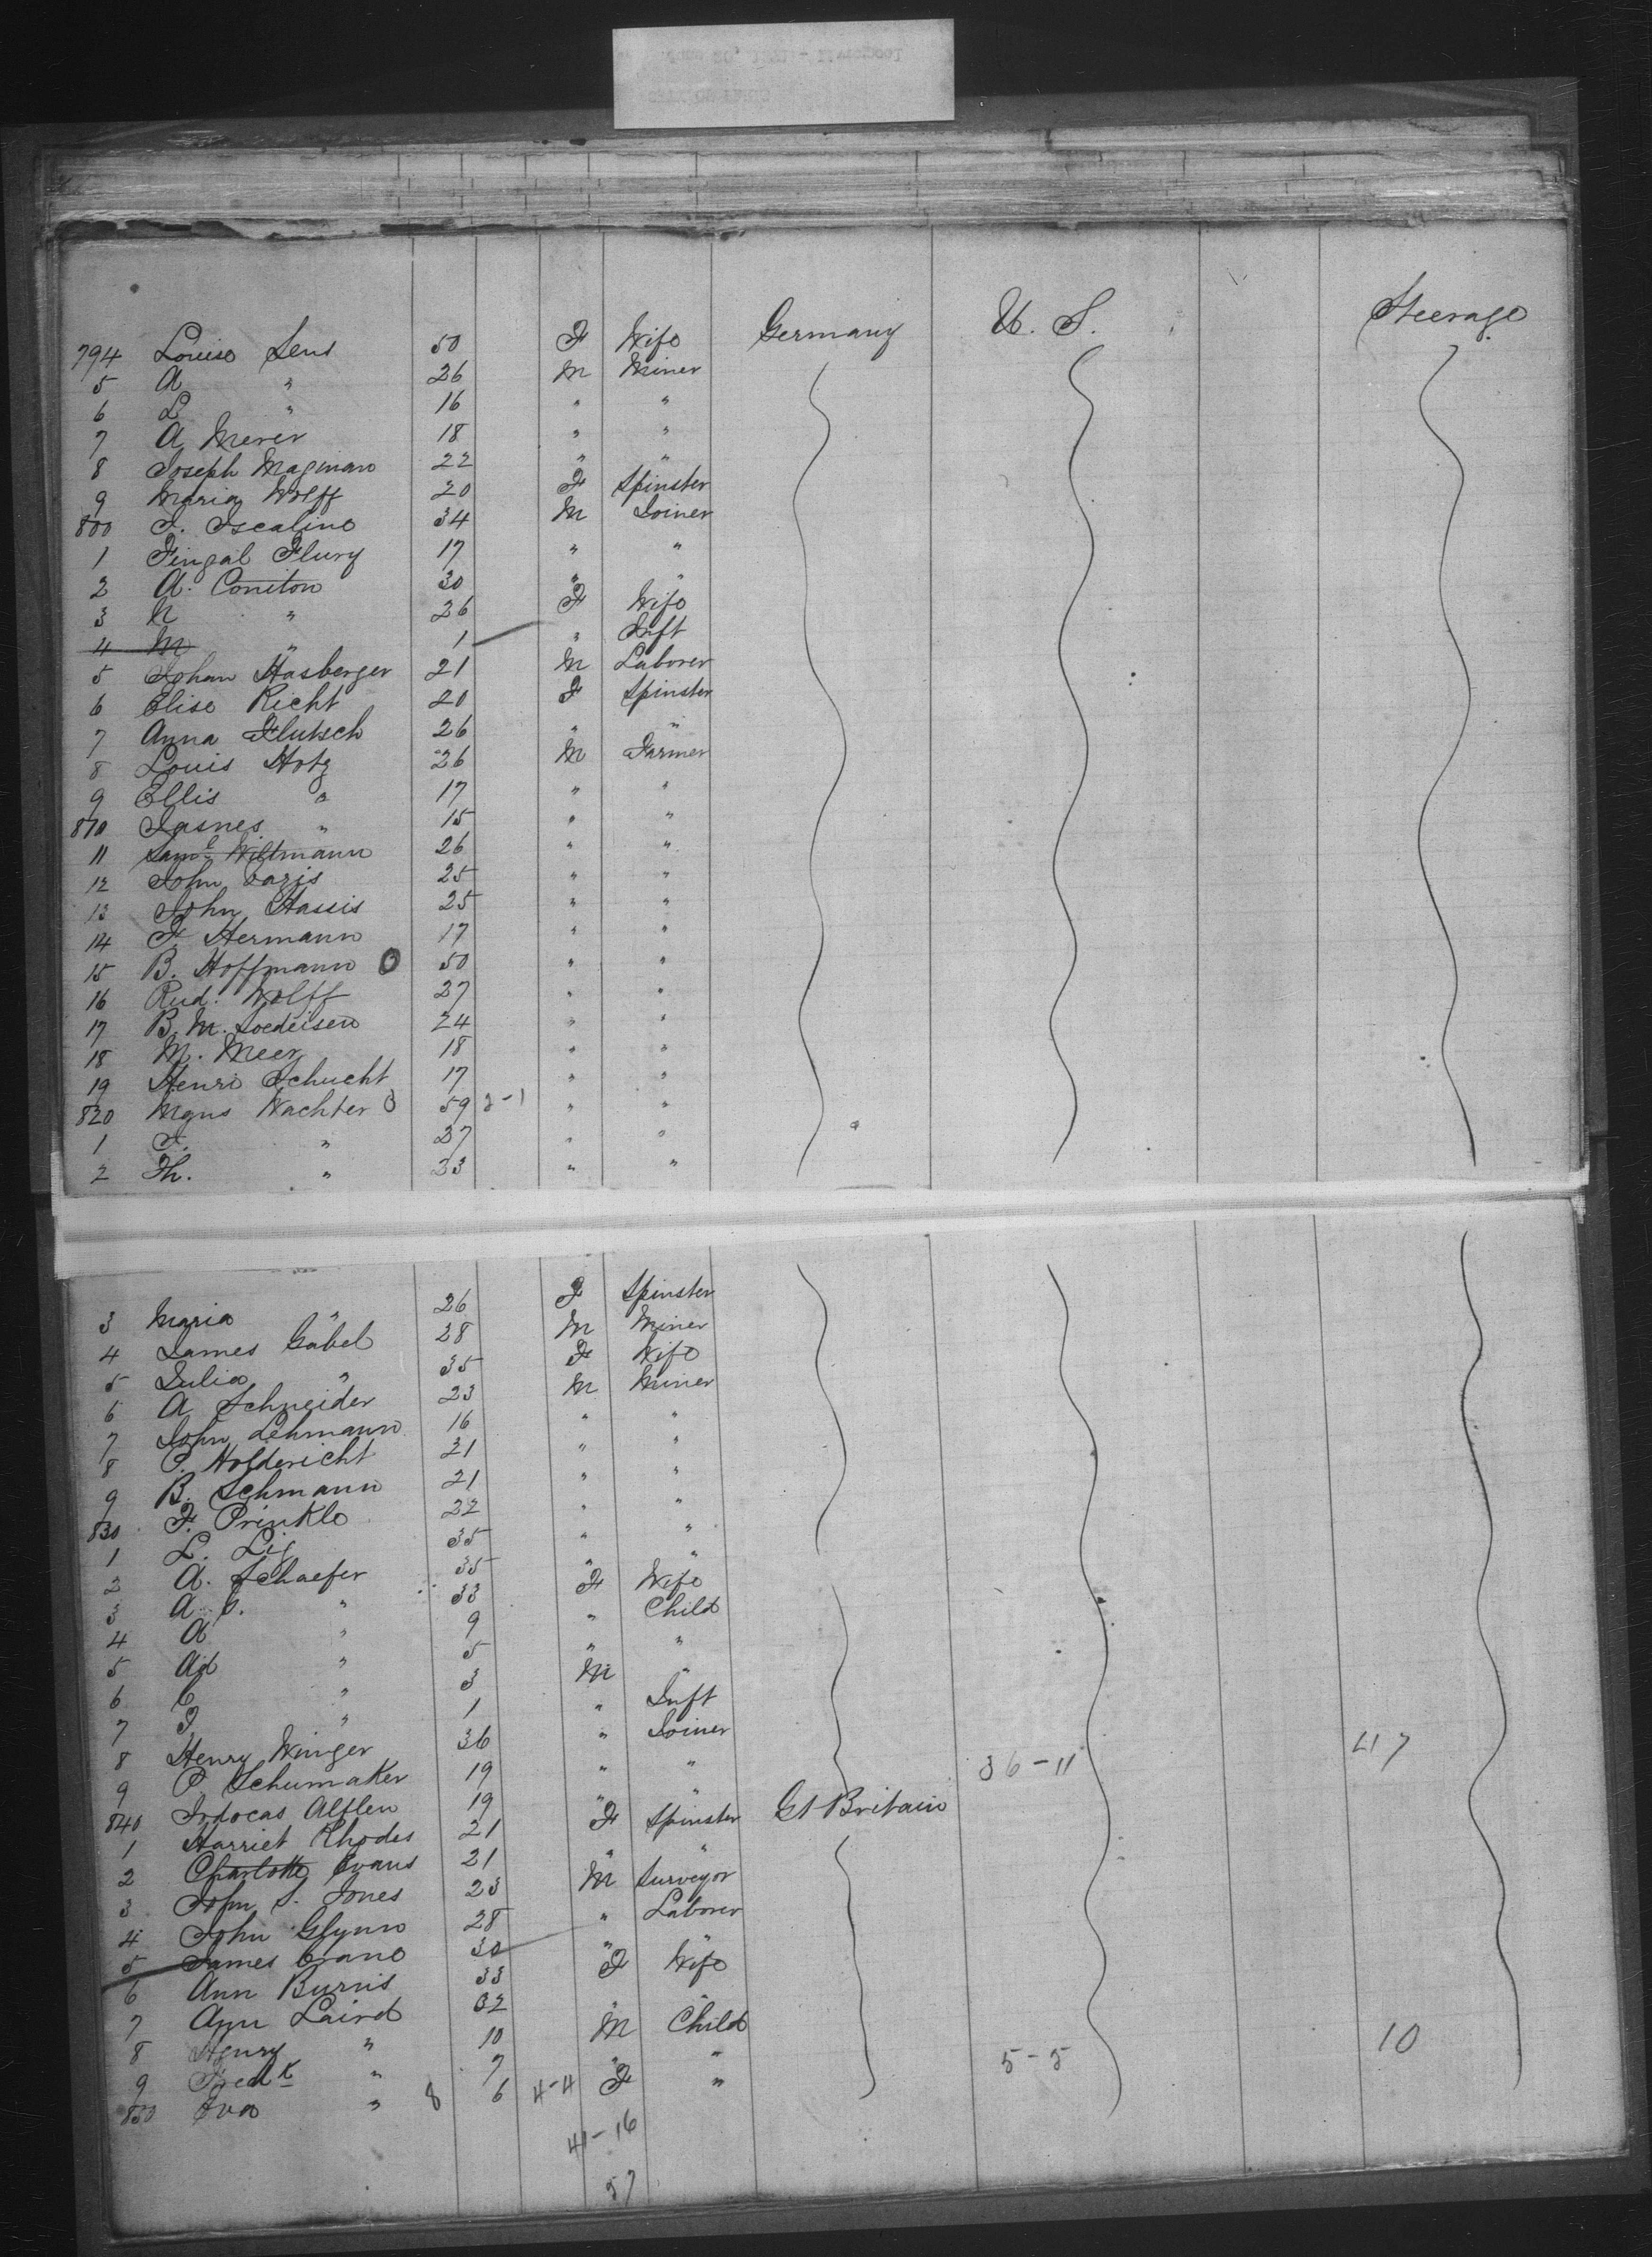 794 Louise Sens 50 F Wife Germany U. S. Steerage
5 A " 26 M Miner
6 L " 16 " "
7 A Merer 18 " "
8 Joseph Magman 22 " "
9 Maria Wolff 20 F Spinster
800 J. Iscaline 34 M Joiner
1 Fingal Flury 17 " "
2 A. Coniton 30 " "
3 N " 26 F Wife
4 M " 1 " Inft
5 Johan Hasberger 21 M Laborer
6 Elise Richt 20 F Spinster
7 Anna Flutsch 26 " "
8 Louis Hotz 26 M Farmer
9 Ellis " 17 " "
810 Jasnes " 15 " "
11 Saml Wittmann 26 " "
12 John 25 " "
13 John Hassis 25 " "
14 F. Hermann 17 " "
15 B. Hoffmann O 50 " "
16 Rud. Wolff 27 " "
17 B. M. 24 " "
18 M. Meer 18 " "
19 Henri Schucht 17 " "
820 Mgns Wachter 3 59 2-1 " "
1 F. " 27 " "
2 Th. " 23 " "
3 Maria " 26 F Spinster
4 James Gabel 28 M Miner
5 Julia " 35 F Wife
6 A Schneider 23 M Miner
7 John Lehmann 16 " "
8 P. Holdericht 21 " "
9 B. Lehmann 21 " "
830 F. Prinkle 22 " "
1 L. Lij 35 " "
2 A. Schaefer 35 " "
3 A. S. " 33 F Wife
4 A " 9 " Child
5 Ad " 5 " "
6 C " 3 M "
7 J " 1 " Inft
8 Henry Winger 36 " Joiner
9 P Schumaker 19 " " 36-11 47
840 Jodocas Alflen 19 " "
1 Harriet Rhodes 21 F Spinster Gt Britain
2 Charlotte Evans 21 " "
3 John S. Jones 23 M Surveyor
4 John Glynn 28 " Laborer
5 James Crane 30 " "
6 Ann Burns 33 F Wife
7 Ann Laird 32 " "
8 Henry " 10 M Child
9 Fredk " 7 " " 5-5 10
850 Eva " 8 6 4-4 F "
41-16
57